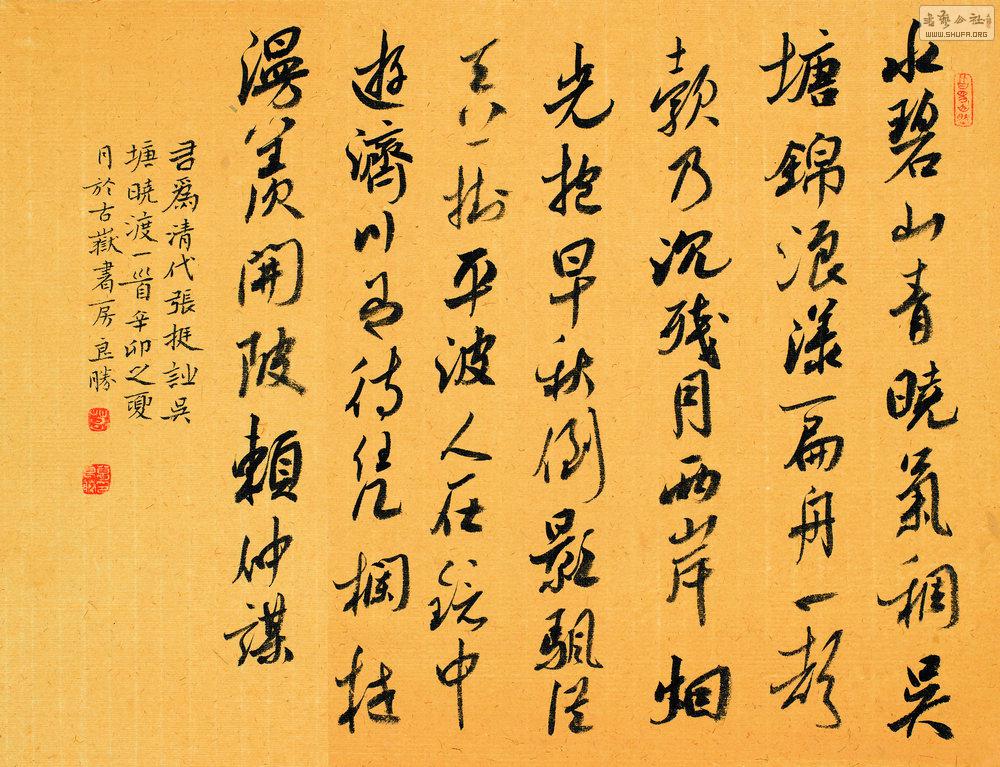 水碧山青曉氣稠吳
塘錦浪漾扁舟一聲
欸乃沉殘月兩岸烟
光抱早秋倒影颿從
天上掛平波人在鏡中
遊濟川有待凭欄枻
漫羨開陂賴仲謀
爲清代張挺詠吳
塘曉渡一首辛卯之夏
月於古嶽書房良勝
书艺公社
WWW.SHUFA.ORG